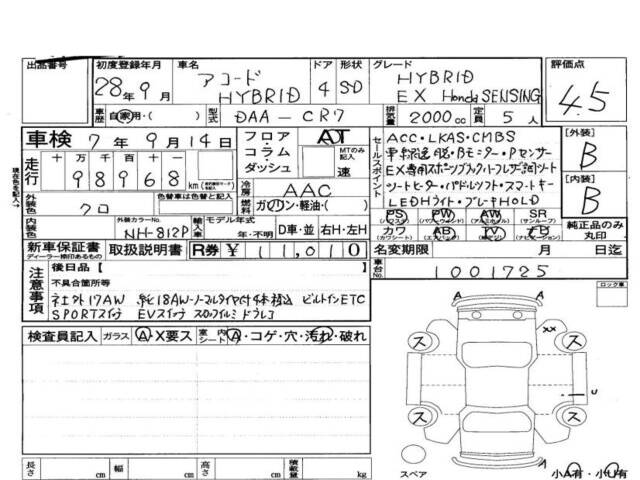 出品番号
初度登録年月
28年9月
車名
アコード
HYBRID
ドア
4
形状
SD
グレード
HYBRID
EX Honda SENSING
評価点
4.5
車歴 自家用・( )
型式 DAA-CR7
排気量 2000cc
定員 5人
車検 7年9月14日
走行
十万千百十
98968 km
現在色を記入→
外装色 クロ
色替車は色替と記入
内装色
外装カラーNo. NH-812P
フロア・コラム・ダッシュ
AT
MTのみ記入
速
冷房 AAC
燃料 ガソリン・軽油・( )
輸入車 モデル年式
年・不明
D車・並 右H・左H
セールスポイント
ACC・LKAS・CMBS
車線逸脱・Bモニター・Pセンサー
EX専用スポーツブラックハーフレザー調シート
シートヒーター・パドルシフト・スマートキー
LEDHライト・ブレーキHOLD
PS PW AW SR
(パワステ) (パワーウインド) (アルミホイル) (サンルーフ)
カワ AB TV ナビ
(カワシート) (エアバック)
【外装】
B
【内装】
B
純正品のみ丸印
新車保証書
ディーラー捺印あるもの
取扱説明書
R券 ¥ 11,010
名変期限 月 日迄
車台No. 1001725
注意事項
後日品【 】
不具合箇所等
社外17AW 純18AWノーマルタイヤ付4本積込 ビルトインETC
SPORTスイッチ EVスイッチ
ロック車
検査員記入 ガラス A・X要ス 室内シート A・コゲ・穴・汚れ・破れ
A
XX
ス ス
U
ス ス
A
スペア
小A有・小U有
長さ cm 幅 cm 高さ cm 積載量 kg